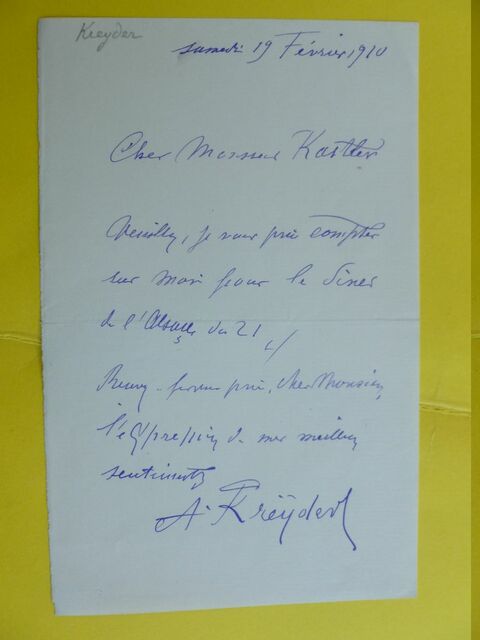 Kreyder
samedi 19 Février 1910
Cher Monsieur Kastler
Veuillez, je vous prie compter
sur moi pour le diner
de l'Alsace du 21 c/
Recevez je vous prie, cher Monsieur,
l'expression de mes meilleurs
sentiments
A. Kreÿder